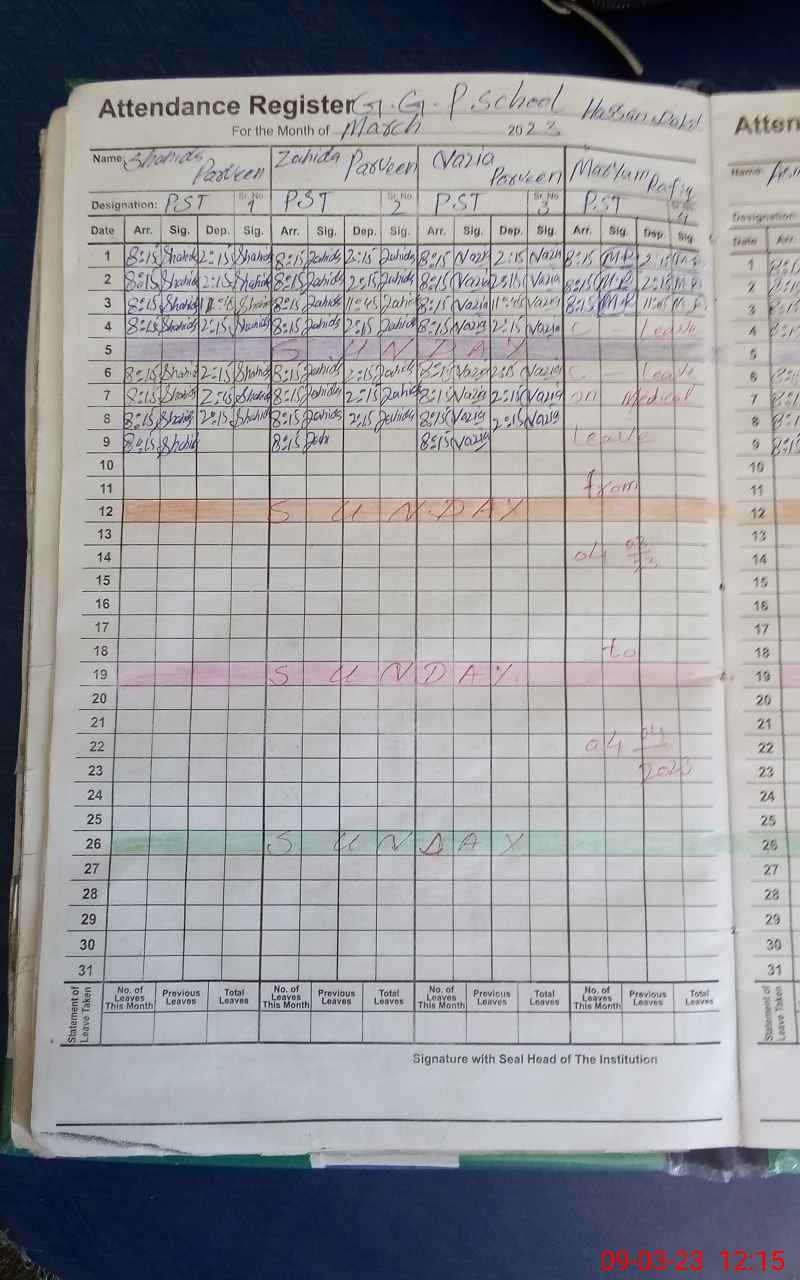 Attendance Register G.G.P.School Hassan
For the Month of March 2023
Name Shahida Parveen Zahida Parveen Nazia Parveen Maryum Rafiq
Designation: PST Sr.No 1 PST Sr.No 2 PST Sr.No 3 PST 4
Date Arr. Sig. Dep. Sig. Arr. Sig. Dep. Sig. Arr. Sig. Dep. Sig. Arr. Sig. Dep. Sig
1 8:15 Shahida 2:15 Shahida 8:15 Zahida 2:15 Zahida 8:15 Nazia 2:15 Nazia 8:15 M.R 2:15 M.R
2 8:15 Shahida 2:15 Shahida 8:15 Zahida 2:15 Zahida 8:15 Nazia 2:15 Nazia 8:15 M.R 2:15 M.R
3 8:15 Shahida 11:45 Shahida 8:15 Zahida 11:45 Zahida 8:15 Nazia 11:45 Nazia 8:15 M.R 11:45 M.R
4 8:15 Shahida 2:15 Shahida 8:15 Zahida 2:15 Zahida 8:15 Nazia 2:15 Nazia C - Leave
5 SUNDAY
6 8:15 Shahida 2:15 Shahida 8:15 Zahida 2:15 Zahida 8:15 Nazia 2:15 Nazia C - Leave
7 8:15 Shahida 2:15 Shahida 8:15 Zahida 2:15 Zahida 8:15 Nazia 2:15 Nazia on Medical
8 8:15 Shahida 2:15 Shahida 8:15 Zahida 2:15 Zahida 8:15 Nazia 2:15 Nazia
9 8:15 Shahid 8:15 8:15 Nazia Leave
10
11 from
12 SUNDAY
13
14 04 03/23
15
16
17
18 to
19 SUNDAY
20
21
22 04 04
23 2023
24
25
26 SUNDAY
27
28
29
30
31
Statement of Leave Taken
No. of Leaves This Month Previous Leaves Total Leaves No. of Leaves This Month Previous Leaves Total Leaves No. of Leaves This Month Previous Leaves Total Leaves No. of Leaves This Month Previous Leaves Total Leaves
Signature with Seal Head of The Institution
Atten
Name:
Designation:
Date Arr.
1
2
3
4
5
6
7
8
9
10
11
12
13
14
15
16
17
18
19
20
21
22
23
24
25
26
27
28
29
30
31
Statement of Leave Taken
No. of Leaves This Month
09-03-23 12:15